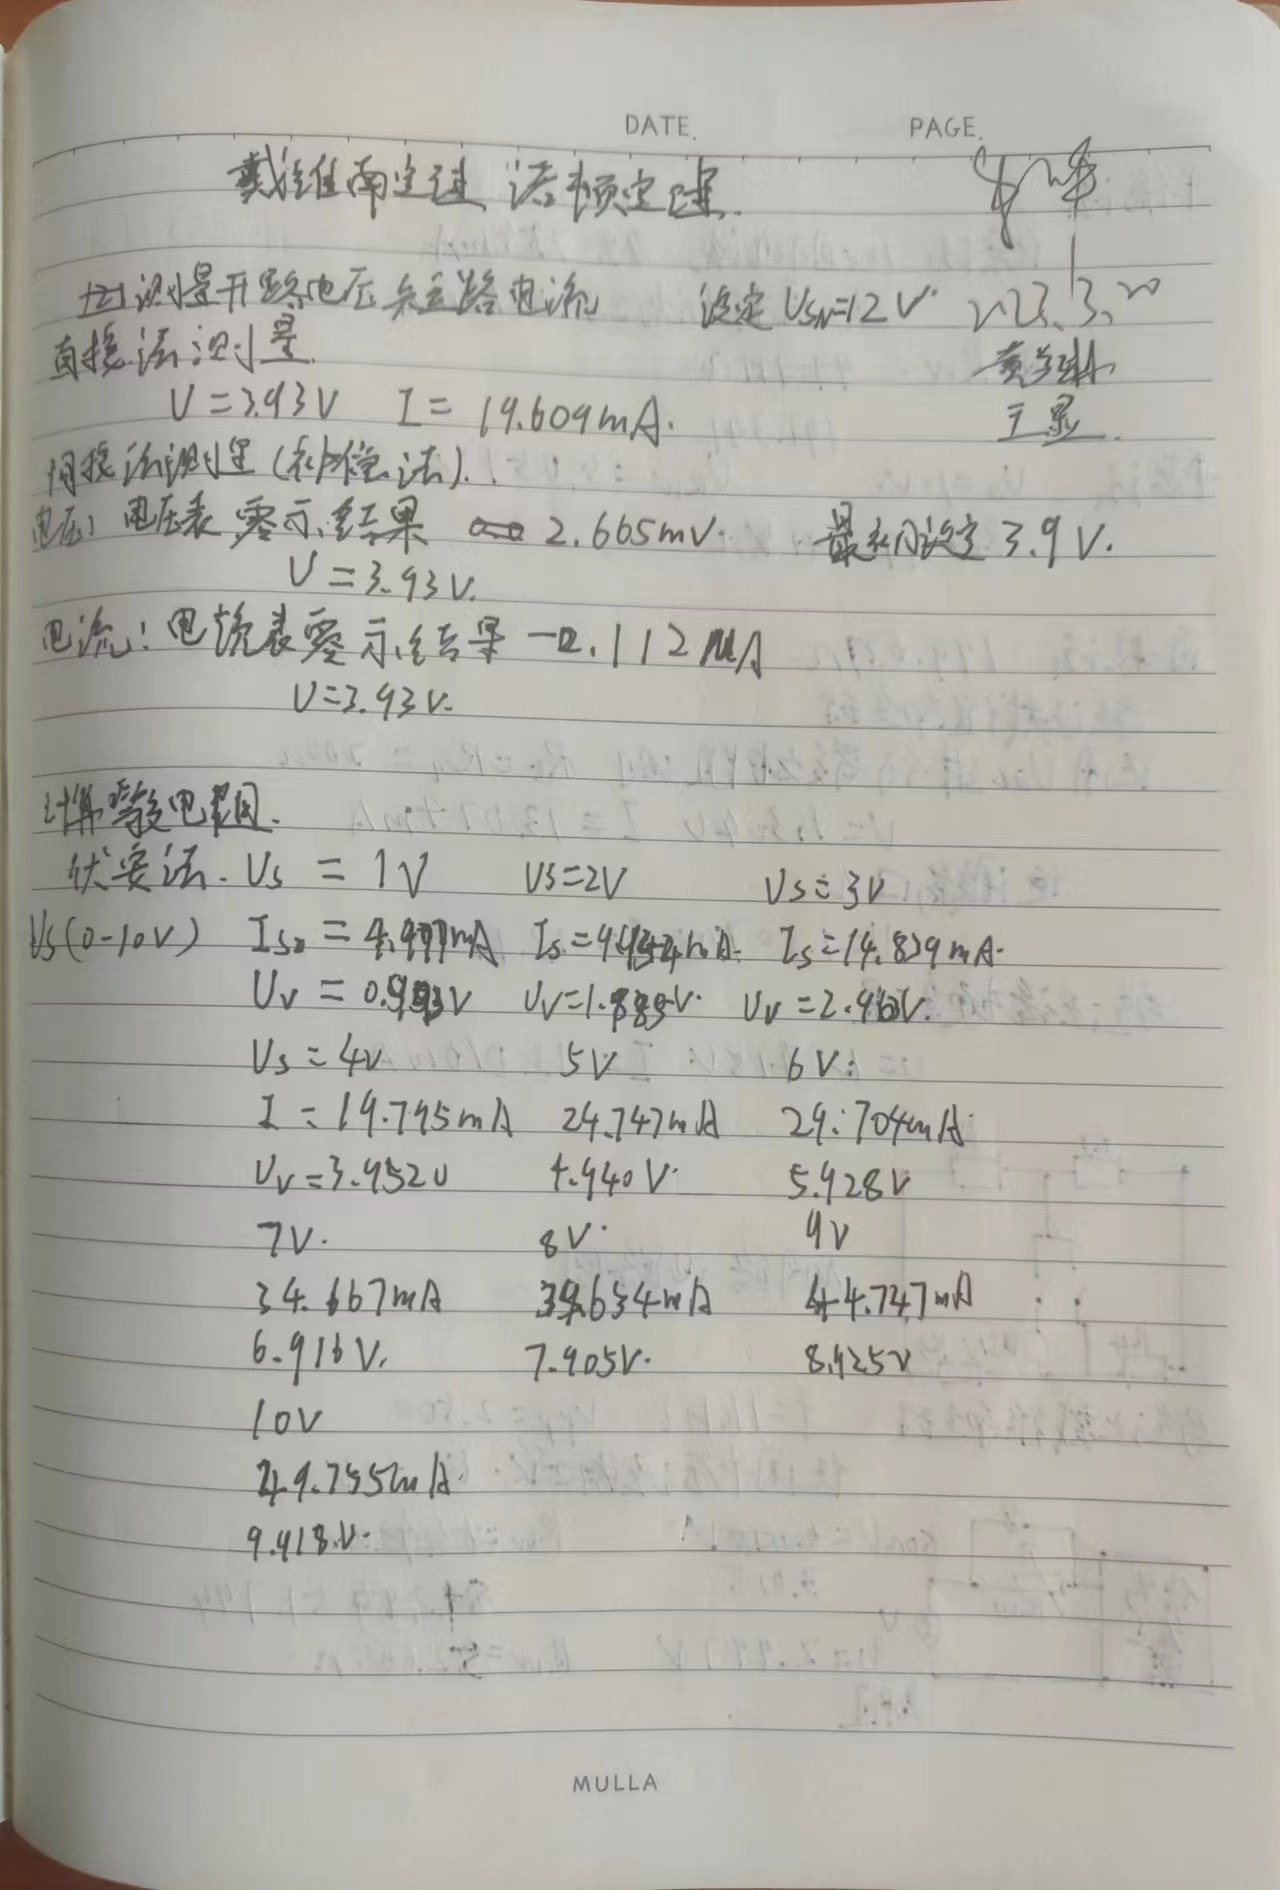 DATE. PAGE.
戴维南定理 诺顿定理.
测量开路电压与短路电流 设定 USN=12V. 2023.3.20
直接法测量.
U=3.93V I=19.609mA.
间接法测量(补偿法).
电压: 电压表零示结果 2.665mV. 最初设定 3.9V.
U=3.93V.
电流: 电流表零示结果 -0.112MA
U=3.93V.
计算等效电阻.
伏安法. Us = 1V Us=2V Us=3V
Us(0-10V) Is = 4.997mA Is= Is=14.839mA.
Uv = 0.993V Uv= Uv=2.963V.
Us=4V 5V 6V:
I = 19.795mA 24.747mA 29.704mA.
Uv=3.952V 4.940V. 5.928V
7V. 8V. 9V
34.667mA 39.654mA 44.747mA
6.916V. 7.905V. 8.925V
10V
49.755mA.
9.918V.
MULLA